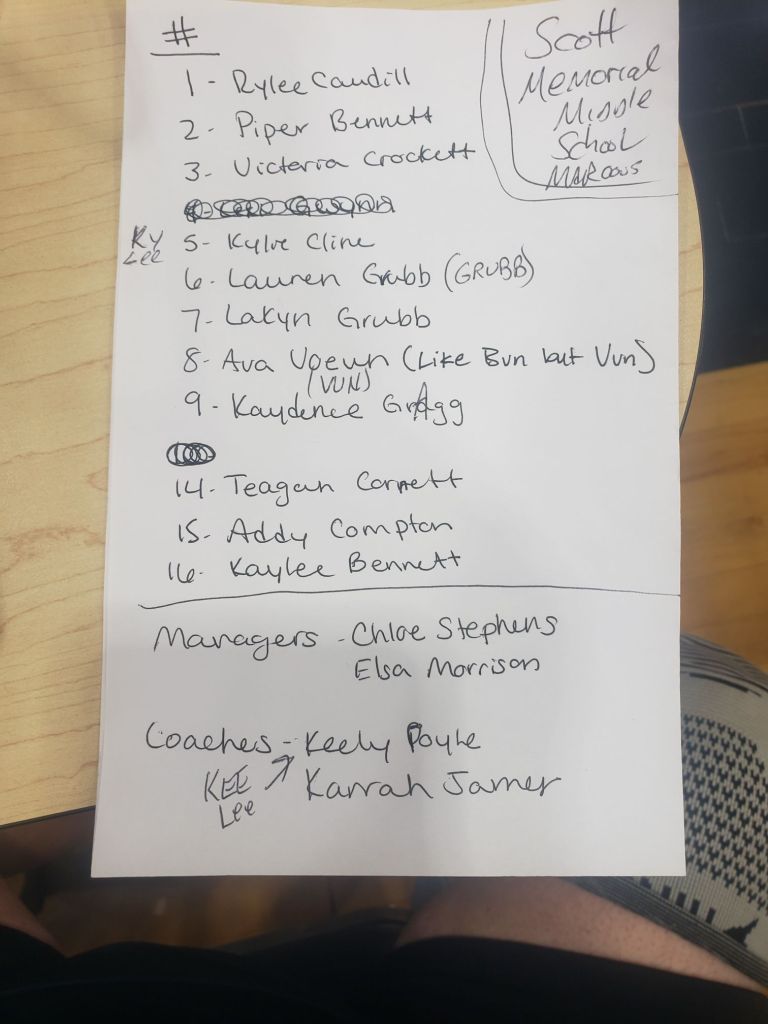 #
Scott
Memorial
Middle
School
MAROONS
1- Rylee Caudill
2- Piper Bennett
3- Victoria Crockett
Ky
Lee
5- Kylie Cline
6- Lauren Grubb (GRUBB)
7- Lakyn Grubb
8- Ava Voeun (Like Bun but Vun)
(VUN)
9- Kaydence GrAgg
14- Teagan
15- Addy Compton
16- Kaylee Bennett
Managers - Chloe Stephens
Elsa Morrison
Coaches - Keely
KEE
Lee
Karrah